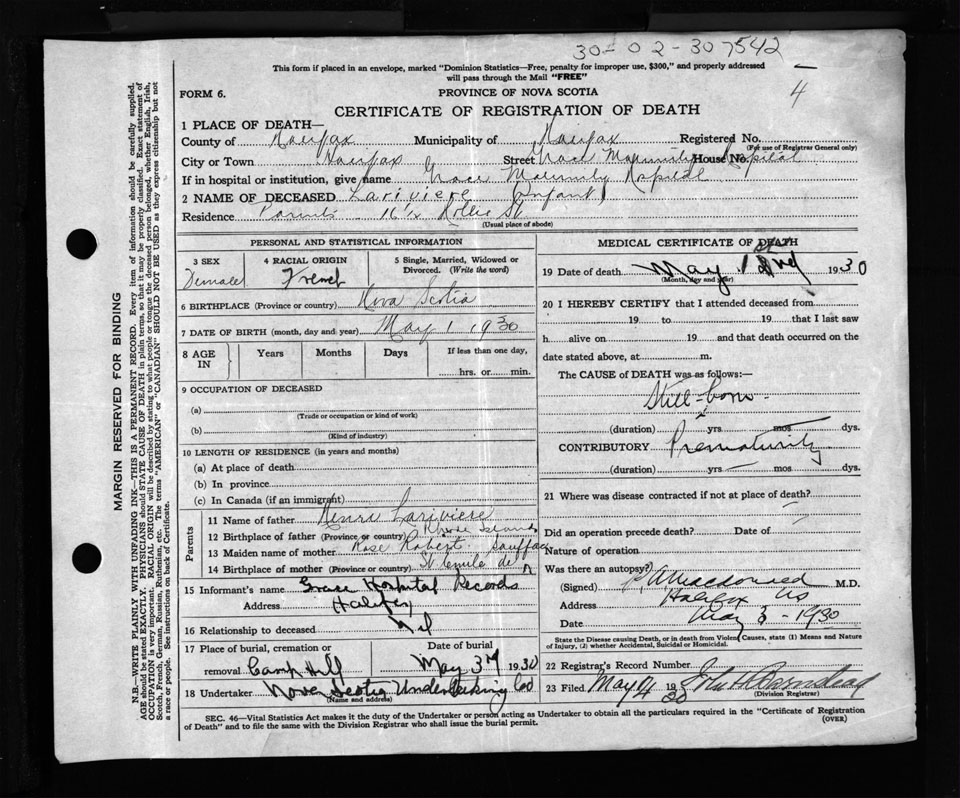 30-02-307542
4
This form if placed in an envelope, marked "Dominion Statistics—Free, penalty for improper use, $300," and properly addressed
will pass through the Mail "FREE"
FORM 6.
PROVINCE OF NOVA SCOTIA
CERTIFICATE OF REGISTRATION OF DEATH
MARGIN RESERVED FOR BINDING
N.B.—WRITE PLAINLY WITH UNFADING INK—THIS IS A PERMANENT RECORD. Every item of information should be carefully supplied.
AGE should be stated EXACTLY. PHYSICIANS should STATE CAUSE OF DEATH in plain terms, so that it may be properly classified. Exact statement of
OCCUPATION is very important. RACIAL ORIGIN will be described by stating to what people or tongue the deceased person belonged, whether English, Irish,
Scotch, French, German, Russian, Ruthenian, etc. The terms "AMERICAN" or "CANADIAN" SHOULD NOT BE USED as they express citizenship but not
a race or people. See instructions on back of Certificate.
1 PLACE OF DEATH—
County of Halifax Municipality of Halifax Registered No.
(For use of Registrar General only)
City or Town Halifax Street Grace Maternity House No. Hospital
If in hospital or institution, give name Grace Maternity Hospital
2 NAME OF DECEASED Lariviere (Infant)
Residence Parents 16 1/2 Hollis St
(Usual place of abode)
PERSONAL AND STATISTICAL INFORMATION
3 SEX Female
4 RACIAL ORIGIN French
5 Single, Married, Widowed or
Divorced. (Write the word)
6 BIRTHPLACE (Province or country) Nova Scotia
7 DATE OF BIRTH (month, day and year) May 1 1930
8 AGE IN Years Months Days If less than one day,
hrs. or min.
9 OCCUPATION OF DECEASED
(a)
(Trade or occupation or kind of work)
(b)
(Kind of industry)
10 LENGTH OF RESIDENCE (in years and months)
(a) At place of death
(b) In province
(c) In Canada (if an immigrant)
Parents
11 Name of father Henri Lariviere
12 Birthplace of father (Province or country) Rhode Island
13 Maiden name of mother Rose Robert
14 Birthplace of mother (Province or country)
15 Informant's name Grace Hospital Records
Address Halifax
16 Relationship to deceased Nil
17 Place of burial, cremation or
removal Camp Hill
Date of burial
May 3rd 1930
18 Undertaker Nova Scotia Undertaking Co
(Name and address)
MEDICAL CERTIFICATE OF DEATH
19 Date of death May 1st 1930
(Month, day and year)
20 I HEREBY CERTIFY that I attended deceased from
19 to 19 that I last saw
h alive on 19 and that death occurred on the
date stated above, at m.
The CAUSE of DEATH was as follows:—
Still-born
(duration) yrs mos dys.
CONTRIBUTORY Prematurity
(duration) yrs mos dys.
21 Where was disease contracted if not at place of death?
Did an operation precede death? Date of
Nature of operation
Was there an autopsy?
(Signed) M.D.
Address Halifax NS
Date May 3 - 1930
State the Disease causing Death, or in death from Violent Causes, state (1) Means and Nature
of Injury, (2) whether Accidental, Suicidal or Homicidal.
22 Registrar's Record Number
23 Filed May 4 19 30
(Division Registrar)
SEC. 46—Vital Statistics Act makes it the duty of the Undertaker or person acting as Undertaker to obtain all the particulars required in the "Certificate of Registration
of Death" and to file the same with the Division Registrar who shall issue the burial permit.
(OVER)